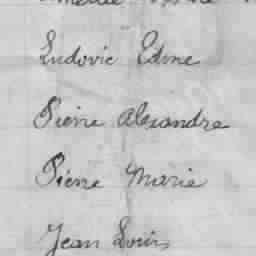 Ludovic Edme
Pierre Alexandre
Pierre Marie
Jean Louis